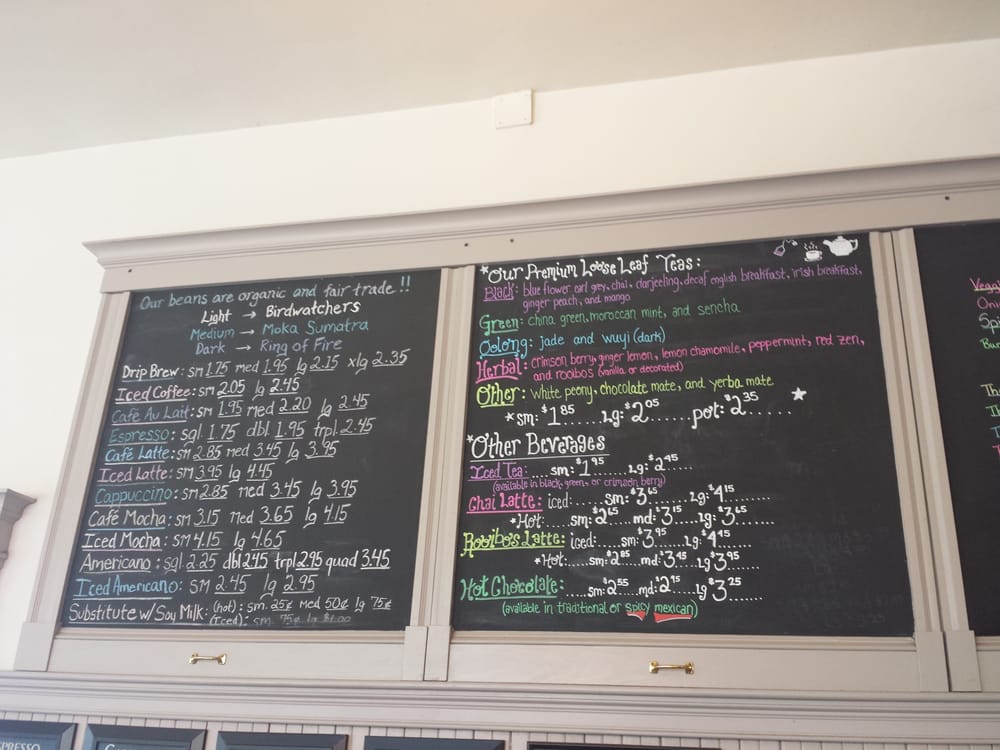 Our beans are organic and fair trade!!
Light → Birdwatchers
Medium → Moka Sumatra
Dark → Ring of Fire
Drip Brew: sm 1.75 med 1.95 lg 2.15 xlg 2.35
Iced Coffee: sm 2.05 lg 2.45
Café Au Lait: sm 1.95 med 2.20 lg 2.45
Espresso: sgl 1.75 dbl 1.95 trpl 2.45
Café Latte: sm 2.85 med 3.45 lg 3.95
Iced Latte: sm 3.95 lg 4.45
Cappuccino: sm 2.85 med 3.45 lg 3.95
Café Mocha: sm 3.15 med 3.65 lg 4.15
Iced Mocha: sm 4.15 lg 4.65
Americano: sgl 2.25 dbl 2.45 trpl 2.95 quad 3.45
Iced Americano: sm 2.45 lg 2.95
Substitute w/ Soy Milk: (hot): sm. 25¢ med 50¢ lg 75¢
(Iced): sm 75¢ lg $1.00
*Our Premium Loose Leaf Teas:
Black: blue flower earl grey, chai, darjeeling, decaf english breakfast, irish breakfast,
ginger peach, and mango
Green: china green, moroccan mint, and sencha
Oolong: jade and wuyi (dark)
Herbal: crimson berry, ginger lemon, lemon chamomile, peppermint, red zen,
and rooibos (vanilla or decorated)
Other: white peony, chocolate mate, and yerba mate
*sm: $1.85 ......lg: $2.05.......pot: $2.35......
*Other Beverages
Iced Tea: ....sm: $1.95......lg: $2.45.....
(available in black, green, or crimson berry)
Chai Latte: iced:......sm: $3.65......lg: $4.15.......
*Hot:.....sm: $2.65...md: $3.15...lg: $3.65.......
Rooibos Latte: iced:.....sm: $3.95...lg: $4.45......
*Hot:....sm: $2.85...md: $3.45..lg: $3.95.......
Hot Chocolate: .....sm: $2.55...md: $2.95..lg $3.25......
(available in traditional or spicy mexican)